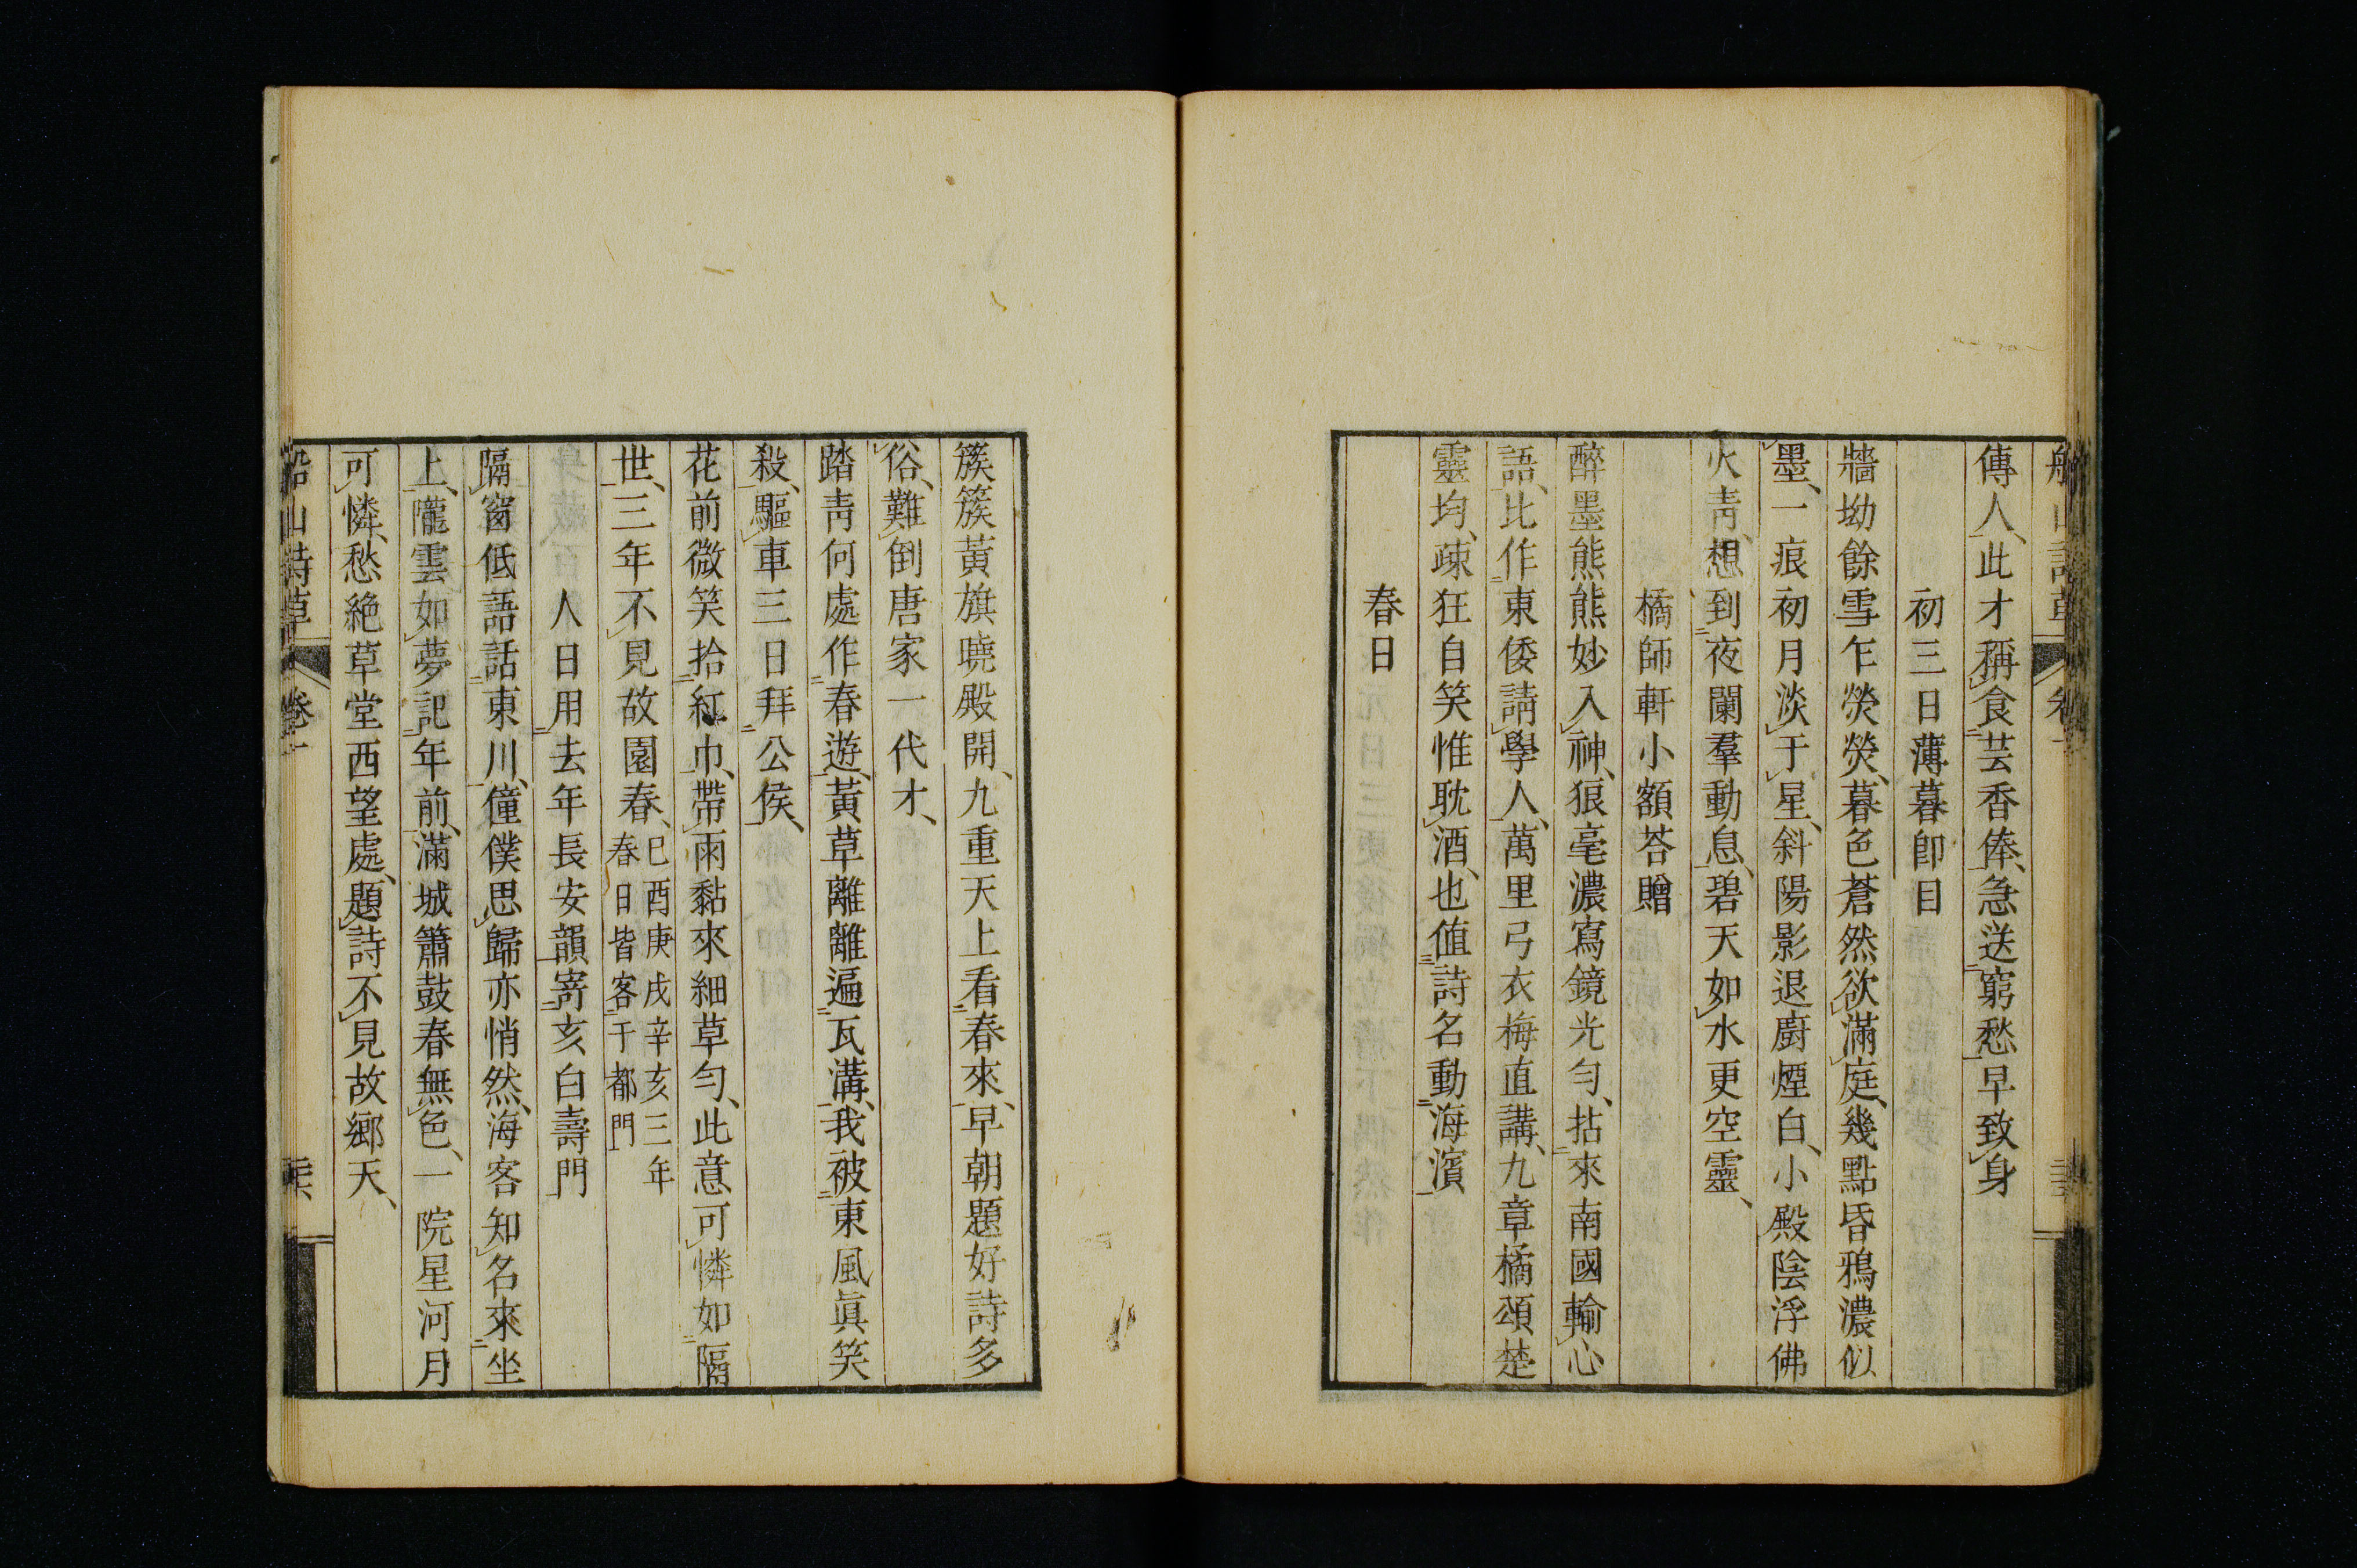 傳人、此才稱食芸香俸、急送窮愁早致身
初三日薄暮卽目
牆坳餘雪乍熒熒、暮色蒼然欲滿庭、幾點昏鴉濃似
墨、一痕初月淡于星、斜陽影退廚煙白、小殿陰浮佛
火青、想到夜闌羣動息、碧天如水更空靈、
橘師軒小額荅贈
醉墨熊熊妙入神、狼毫濃寫鏡光勻、拈來南國輸心
語、比作東倭請學人、萬里弓衣梅直講、九章橘頌楚
靈均、疎狂自笑惟耽酒、也値詩名動海濱
春日
簇簇黃旗曉殿開、九重天上看春來、早朝題好詩多
俗、難倒唐家一代才、
踏青何處作春遊、黃草離離遍瓦溝、我被東風眞笑
殺、驅車三日拜公侯、
花前微笑拾紅巾、帶雨黏來細草勻、此意可憐如隔
世、三年不見故園春、巳酉庚戌辛亥三年
春日皆客于都門
人日用去年長安韻寄亥白壽門
隔窗低語話東川、僮僕思歸亦悄然、海客知名來坐
上、隴雲如夢記年前、滿城簫鼓春無色、一院星河月
可憐、愁絶草堂西望處、題詩不見故鄉天、
船山詩草 卷一